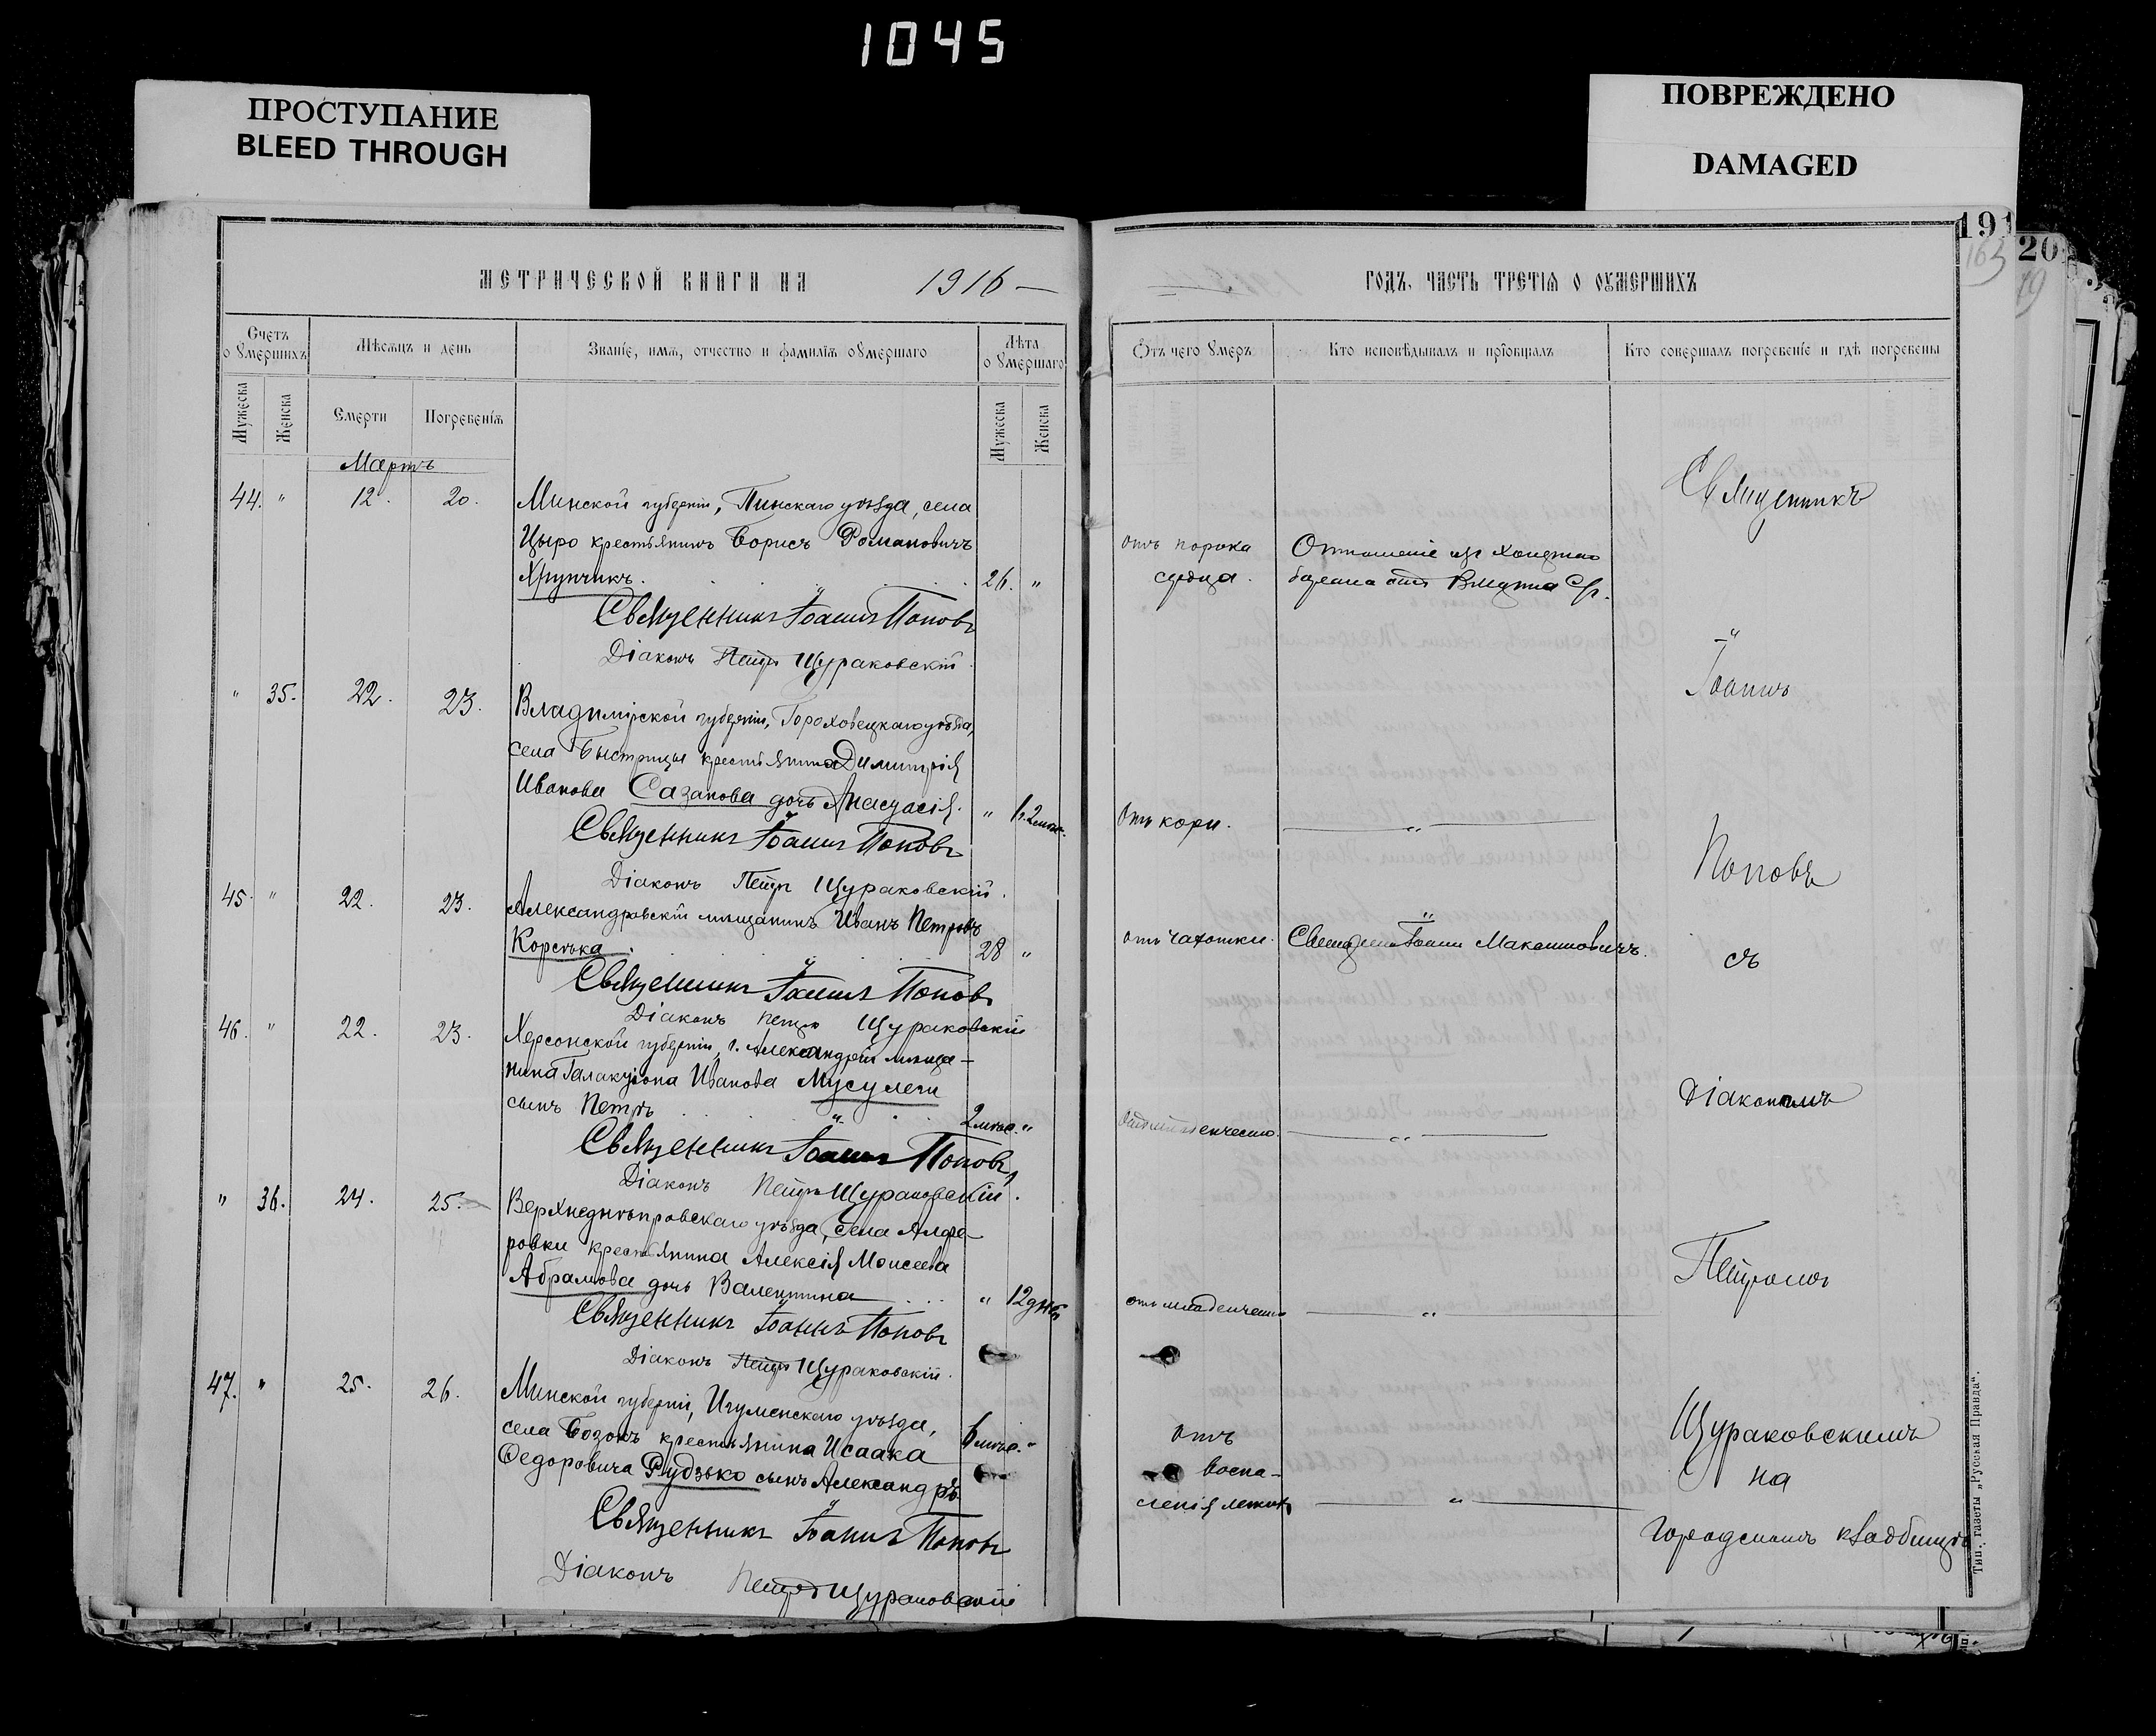 1045
ПРОСТУПАНИЕ
BLEED THROUGH
ПОВРЕЖДЕНО
DAMAGED
191
163
20
19
МЕТРИЧЕСКОЙ КНИГИ НА 1916 —
ГОДЪ, ЧАСТЬ ТРЕТІѦ О ОУМЕРШИХЪ
Счетъ оумершихъ
Мѣсѧцъ и день
Званіе, имѧ, отчество и фамиліѧ оумершаго
Лѣта оумершаго
Мужеска
Женска
Смерти
Погребеніѧ
Мужеска
Женска
Отъ чего умеръ
Кто исповѣдывалъ и пріобщалъ
Кто совершалъ погребеніе и гдѣ погребены
Мартъ
44. " 12. 20. Минской губерніи, Пинскаго уѣзда, села
Цыро крестьянинъ Борисъ Романовичъ
Хрупчикъ. 26. "
отъ порока
сердца.
Отношеніе
Священникъ Іоаннъ Поповъ
Діаконъ Петръ Щураковскій.
" 35. 22. 23. Владимірской губерніи, Гороховецкаго уѣзда,
села Быстрицы крестьянина Димитрія
Иванова Сазанова дочь Анастасія. " 1г. 2мѣс.
Отъ кори. "
Священникъ Іоаннъ Поповъ
Діаконъ Петръ Щураковскій.
45. " 22. 23. Александровскій мѣщанинъ Иванъ Петровъ
Корсѣка. 28 "
отъ чахотки. Священникъ Іоаннъ Максимовичъ.
Священникъ Іоаннъ Поповъ
Діаконъ Петръ Щураковскій
46. " 22. 23. Херсонской губерніи, г. Александріи мѣща-
нина Галактіона Иванова Мусулеги
сынъ Петръ 2мѣс. "
"
Священникъ Іоаннъ Поповъ
Діаконъ Петръ Щураковскій.
" 36. 24. 25. Верхнеднѣпровскаго уѣзда, села Алфе-
ровки крестьянина Алексія Моисеева
Абрамова дочь Валентина " 12 дней
отъ младенческо "
Священникъ Іоаннъ Поповъ
Діаконъ Петръ Щураковскій.
47. " 25. 26. Минской губерніи, Игуменскаго уѣзда,
села Бозокъ крестьянина Исаака 6мѣс. "
Ѳедоровича Рудзько сынъ Александръ
отъ
воспа-
ленія легкихъ "
Священникъ Іоаннъ Поповъ
Діаконъ Петръ Щураковскій
Священникъ
Іоаннъ
Поповъ
съ
Діакономъ
Петромъ
Щураковскимъ
на
городскомъ кладбищѣ
Тип. газеты „Русская Правда“.